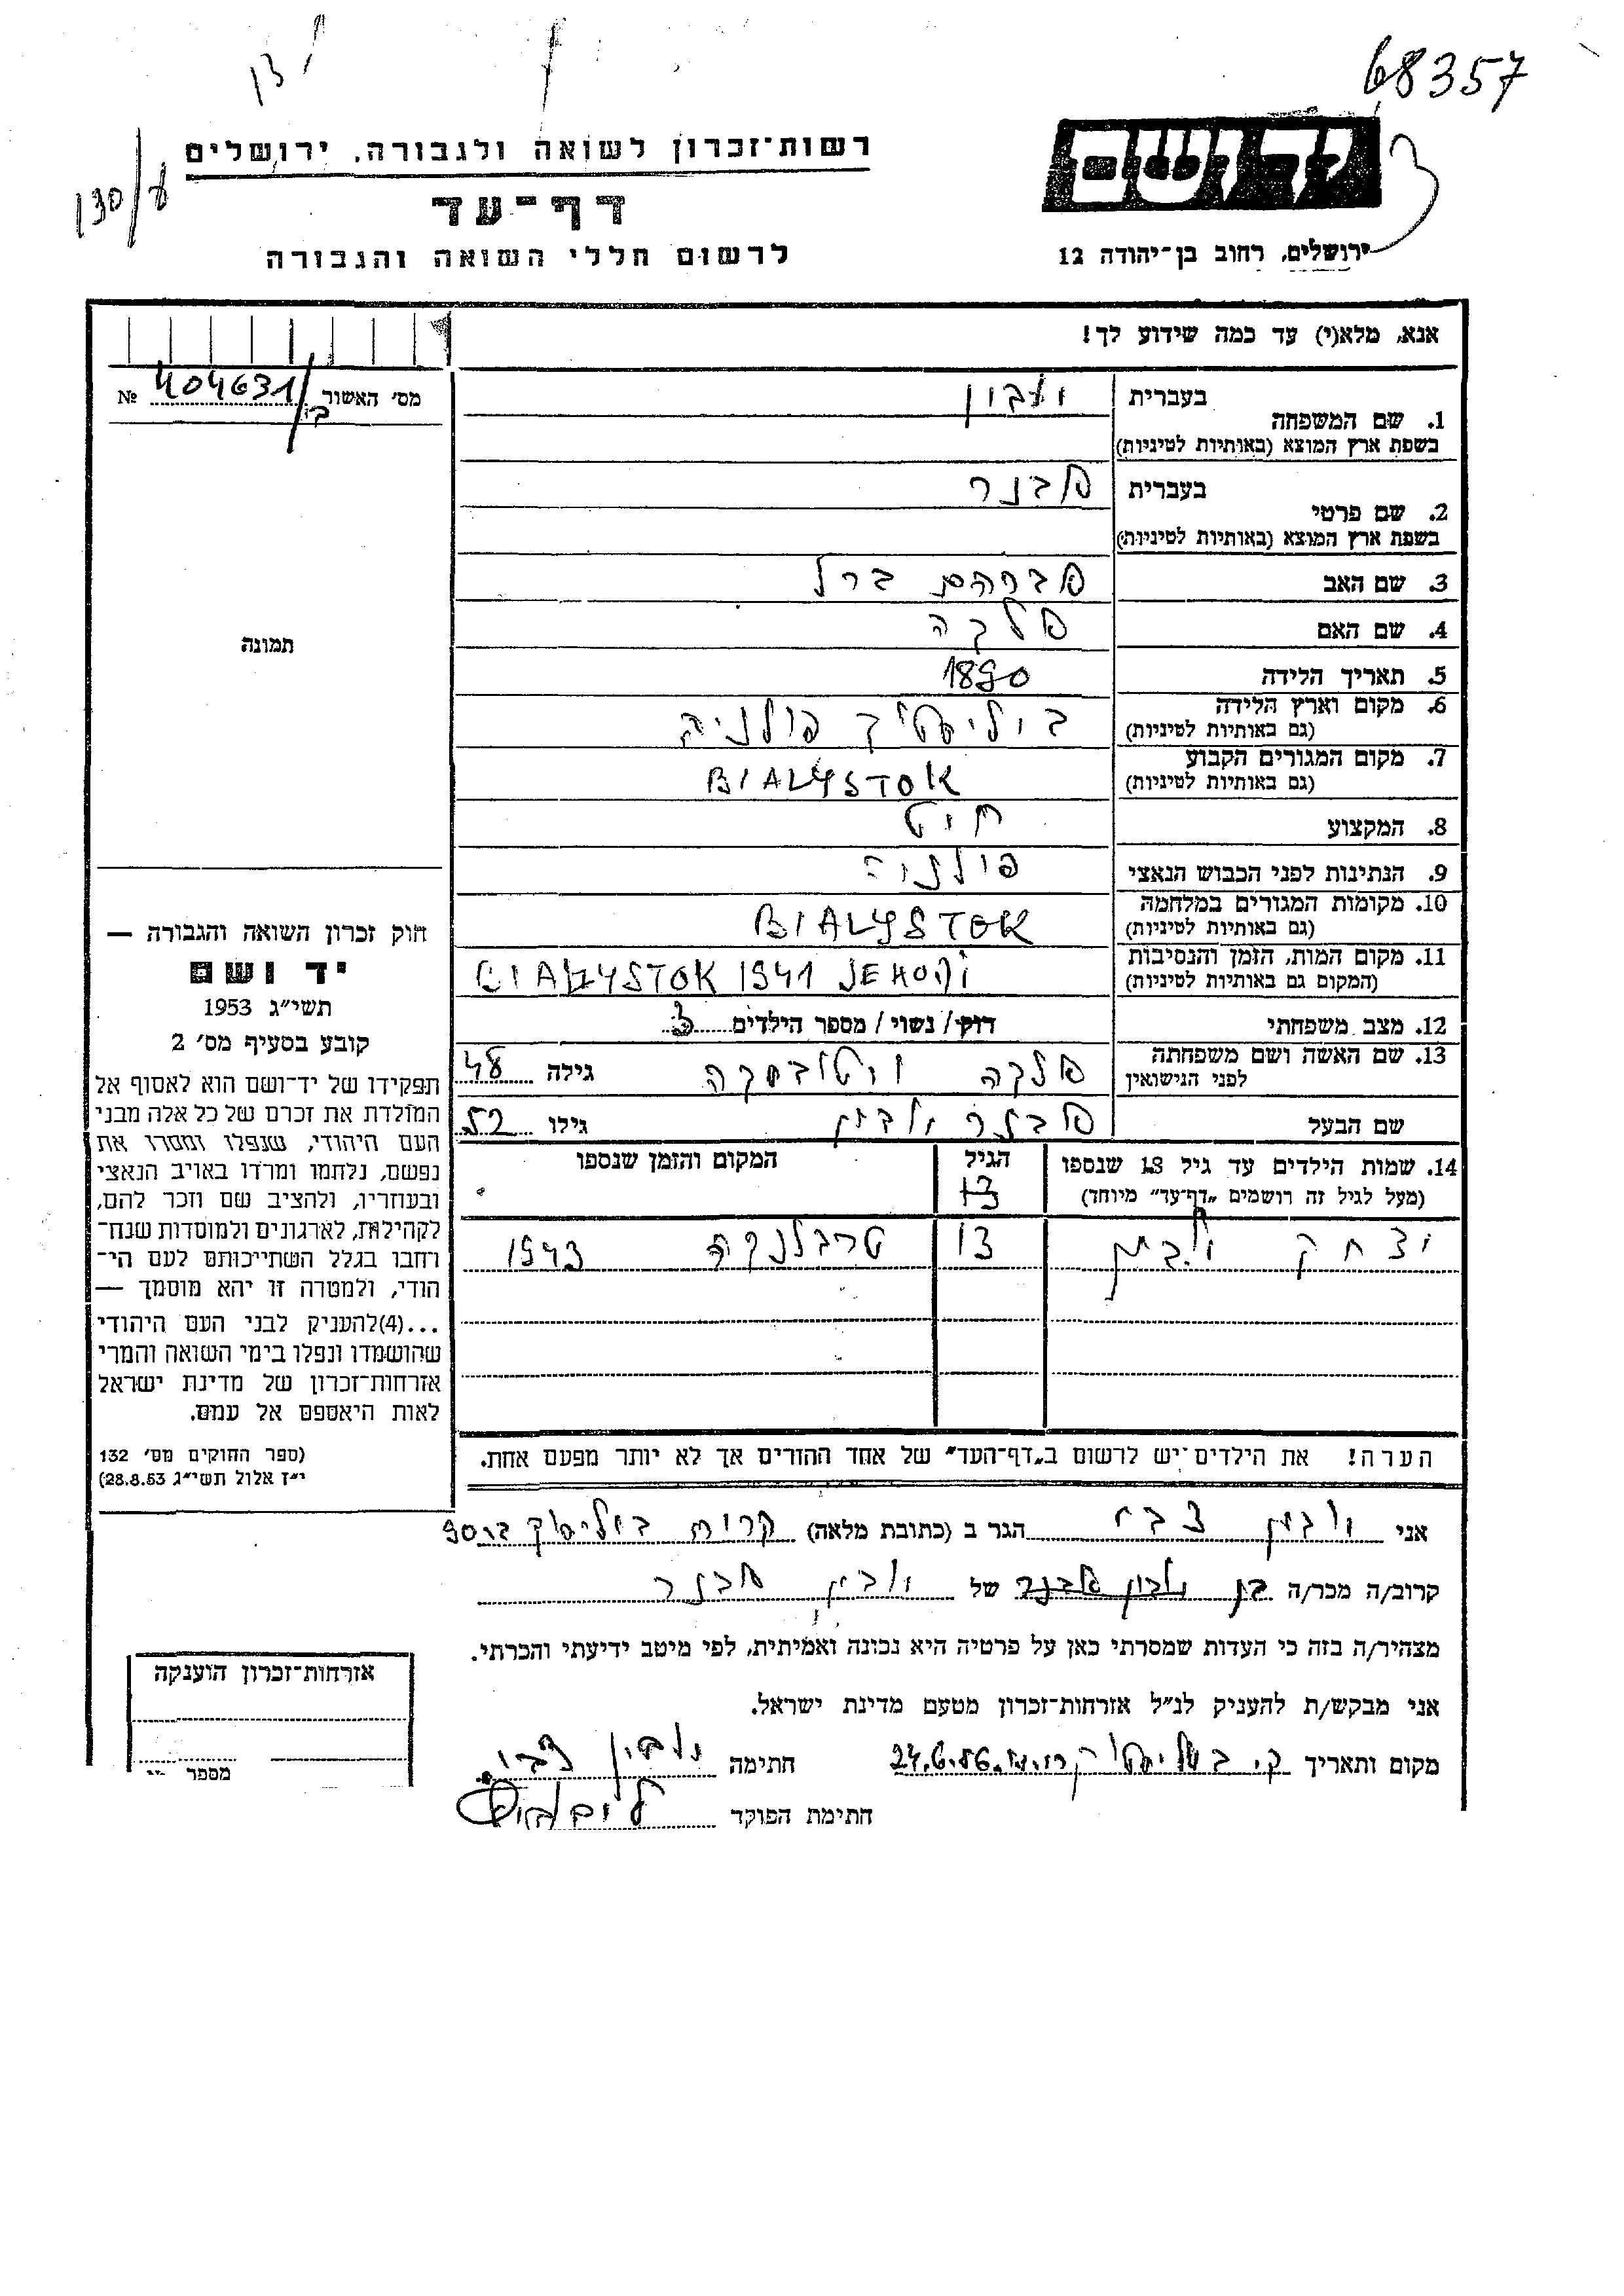 68357
רשות־זכרון לשואה ולגבורה, ירושלים
דף־עד
לרשום חללי השואה והגבורה
ידושם
ירושלים, רחוב בן־יהודה 12
אנא, מלא(י) עד כמה שידוע לך!
מס׳ האשור 404631 №
1. שם המשפחה בעברית
בשפת ארץ המוצא (באותיות לטיניות)
2. שם פרטי בעברית אבנר
בשפת ארץ המוצא (באותיות לטיניות)
3. שם האב אברהם ברל
4. שם האם
5. תאריך הלידה 1890
6. מקום וארץ הלידה
(גם באותיות לטיניות)
7. מקום המגורים הקבוע BIALYSTOK
(גם באותיות לטיניות)
8. המקצוע חיט
9. הנתינות לפני הכבוש הנאצי
10. מקומות המגורים במלחמה BIALYSTOK
(גם באותיות לטיניות)
11. מקום המות, הזמן והנסיבות BIALYSTOK 1941
(המקום גם באותיות לטיניות)
12. מצב משפחתי רווק/ נשוי/ מספר הילדים 3
13. שם האשה ושם משפחתה
לפני הנישואין גילה 48
שם הבעל אבנר גילו 52
14. שמות הילדים עד גיל 18 שנספו הגיל המקום והזמן שנספו
(מעל לגיל זה רושמים „דף־עד״ מיוחד) 13
יצחק 13 טרבלנקה 1943
הערה! את הילדים יש לרשום ב„דף־העד״ של אחד ההורים אך לא יותר מפעם אחת.
תמונה
חוק זכרון השואה והגבורה —
יד ושם
תשי״ג 1953
קובע בסעיף מס׳ 2
תפקידו של יד־ושם הוא לאסוף אל
המולדת את זכרם של כל אלה מבני
העם היהודי, שנפלו ומסרו את
נפשם, נלחמו ומרדו באויב הנאצי
ובעוזריו, ולהציב שם וזכר להם,
לקהילות, לארגונים ולמוסדות שנח־
רבו בגלל השתייכותם לעם הי־
הודי, ולמטרה זו יהא מוסמך —
...(4)להעניק לבני העם היהודי
שהושמדו ונפלו בימי השואה והמרי
אזרחות־זכרון של מדינת ישראל
לאות היאספם אל עמם.
(ספר החוקים מס׳ 132
י״ז אלול תשי״ג 28.8.53)
אני צבי הגר ב (כתובת מלאה)
קרוב/ה מכר/ה בן של אבנר
מצהיר/ה בזה כי העדות שמסרתי כאן על פרטיה היא נכונה ואמיתית, לפי מיטב ידיעתי והכרתי.
אני מבקש/ת להעניק לנ״ל אזרחות־זכרון מטעם מדינת ישראל.
מקום ותאריך חתימה
חתימת הפוקד
אזרחות־זכרון הוענקה
מספר